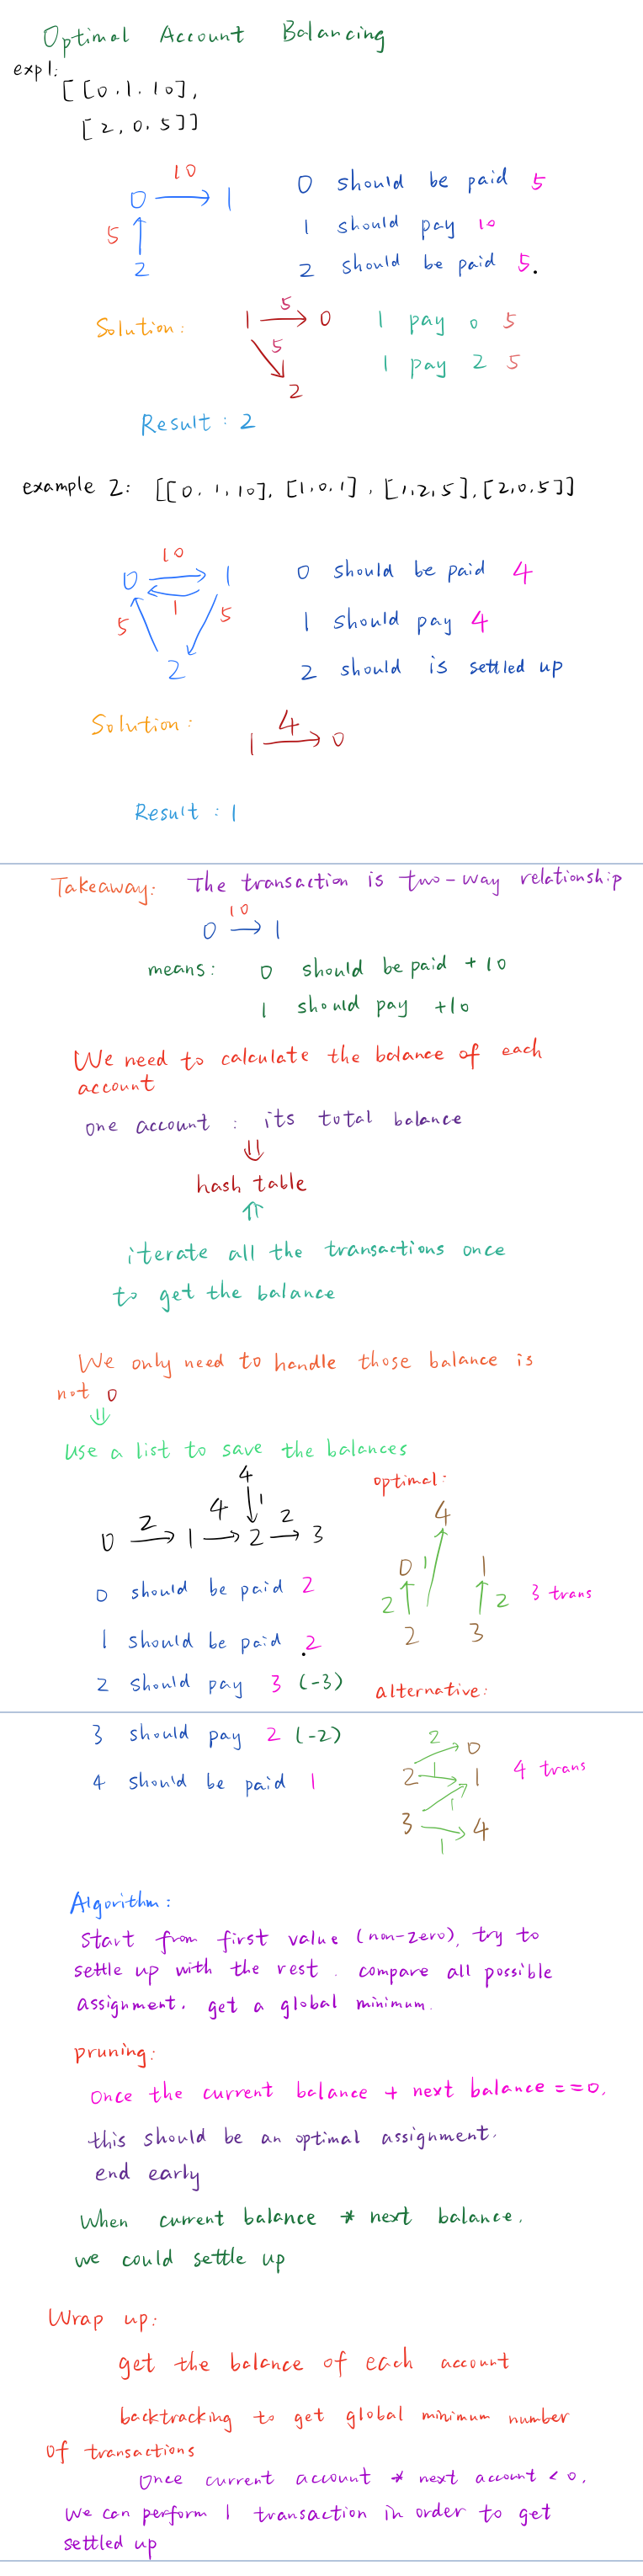 Optimal Account Balancing
exp1:
[[0.1.10],
[2,0.5]]
10
0 → 1
5
2
0 should be paid 5
1 should pay 10
2 should be paid 5.
Solution:
5
1 → 0
5
2
1 pay 0 5
1 pay 2 5
Result: 2
example 2: [[0.1,10], [1,0,1], [1,2,5], [2,0,5]]
10
0 1
1
5 5
2
0 should be paid 4
1 should pay 4
2 should is settled up
Solution:
4
1 → 0
Result: 1
Takeaway: The transaction is two-way relationship
10
0 → 1
means: 0 should be paid +10
1 should pay +10
We need to calculate the balance of each
account
one account : its total balance
⇓
hash table
⇑
iterate all the transactions once
to get the balance
We only need to handle those balance is
not 0
⇓
Use a list to save the balances
4
2 4 1 2
0 → 1 → 2 → 3
0 should be paid 2
1 should be paid 2
2 should pay 3 (-3)
optimal:
4
0 1 1
2 2
2 3
3 trans
alternative:
3 should pay 2 (-2)
4 should be paid 1
2
0
2 1 1
1
3 4
1
4 trans
Algorithm:
Start from first value (non-zero), try to
settle up with the rest. compare all possible
assignment. get a global minimum.
pruning:
Once the current balance + next balance ==0,
this should be an optimal assignment.
end early
When current balance * next balance.
we could settle up
Wrap up:
get the balance of each account
backtracking to get global minimum number
of transactions
Once current account * next account < 0,
We can perform 1 transaction in order to get
settled up